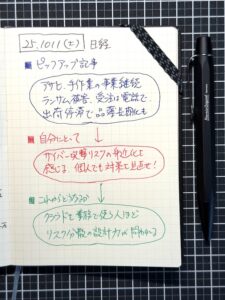 25.1011(土) 日経
■ピックアップ記事
アサヒ、手作業の事業継続
ランサム被害、受注は電話で、
出荷停滞で品薄長期化も
■自分にとって
サイバー攻撃リスクの身近化を
感じる、個人でも対策を見直せ!
■これからどうなるか
クラウドを業務で使う人ほど
リスク分散の設計力が問われる